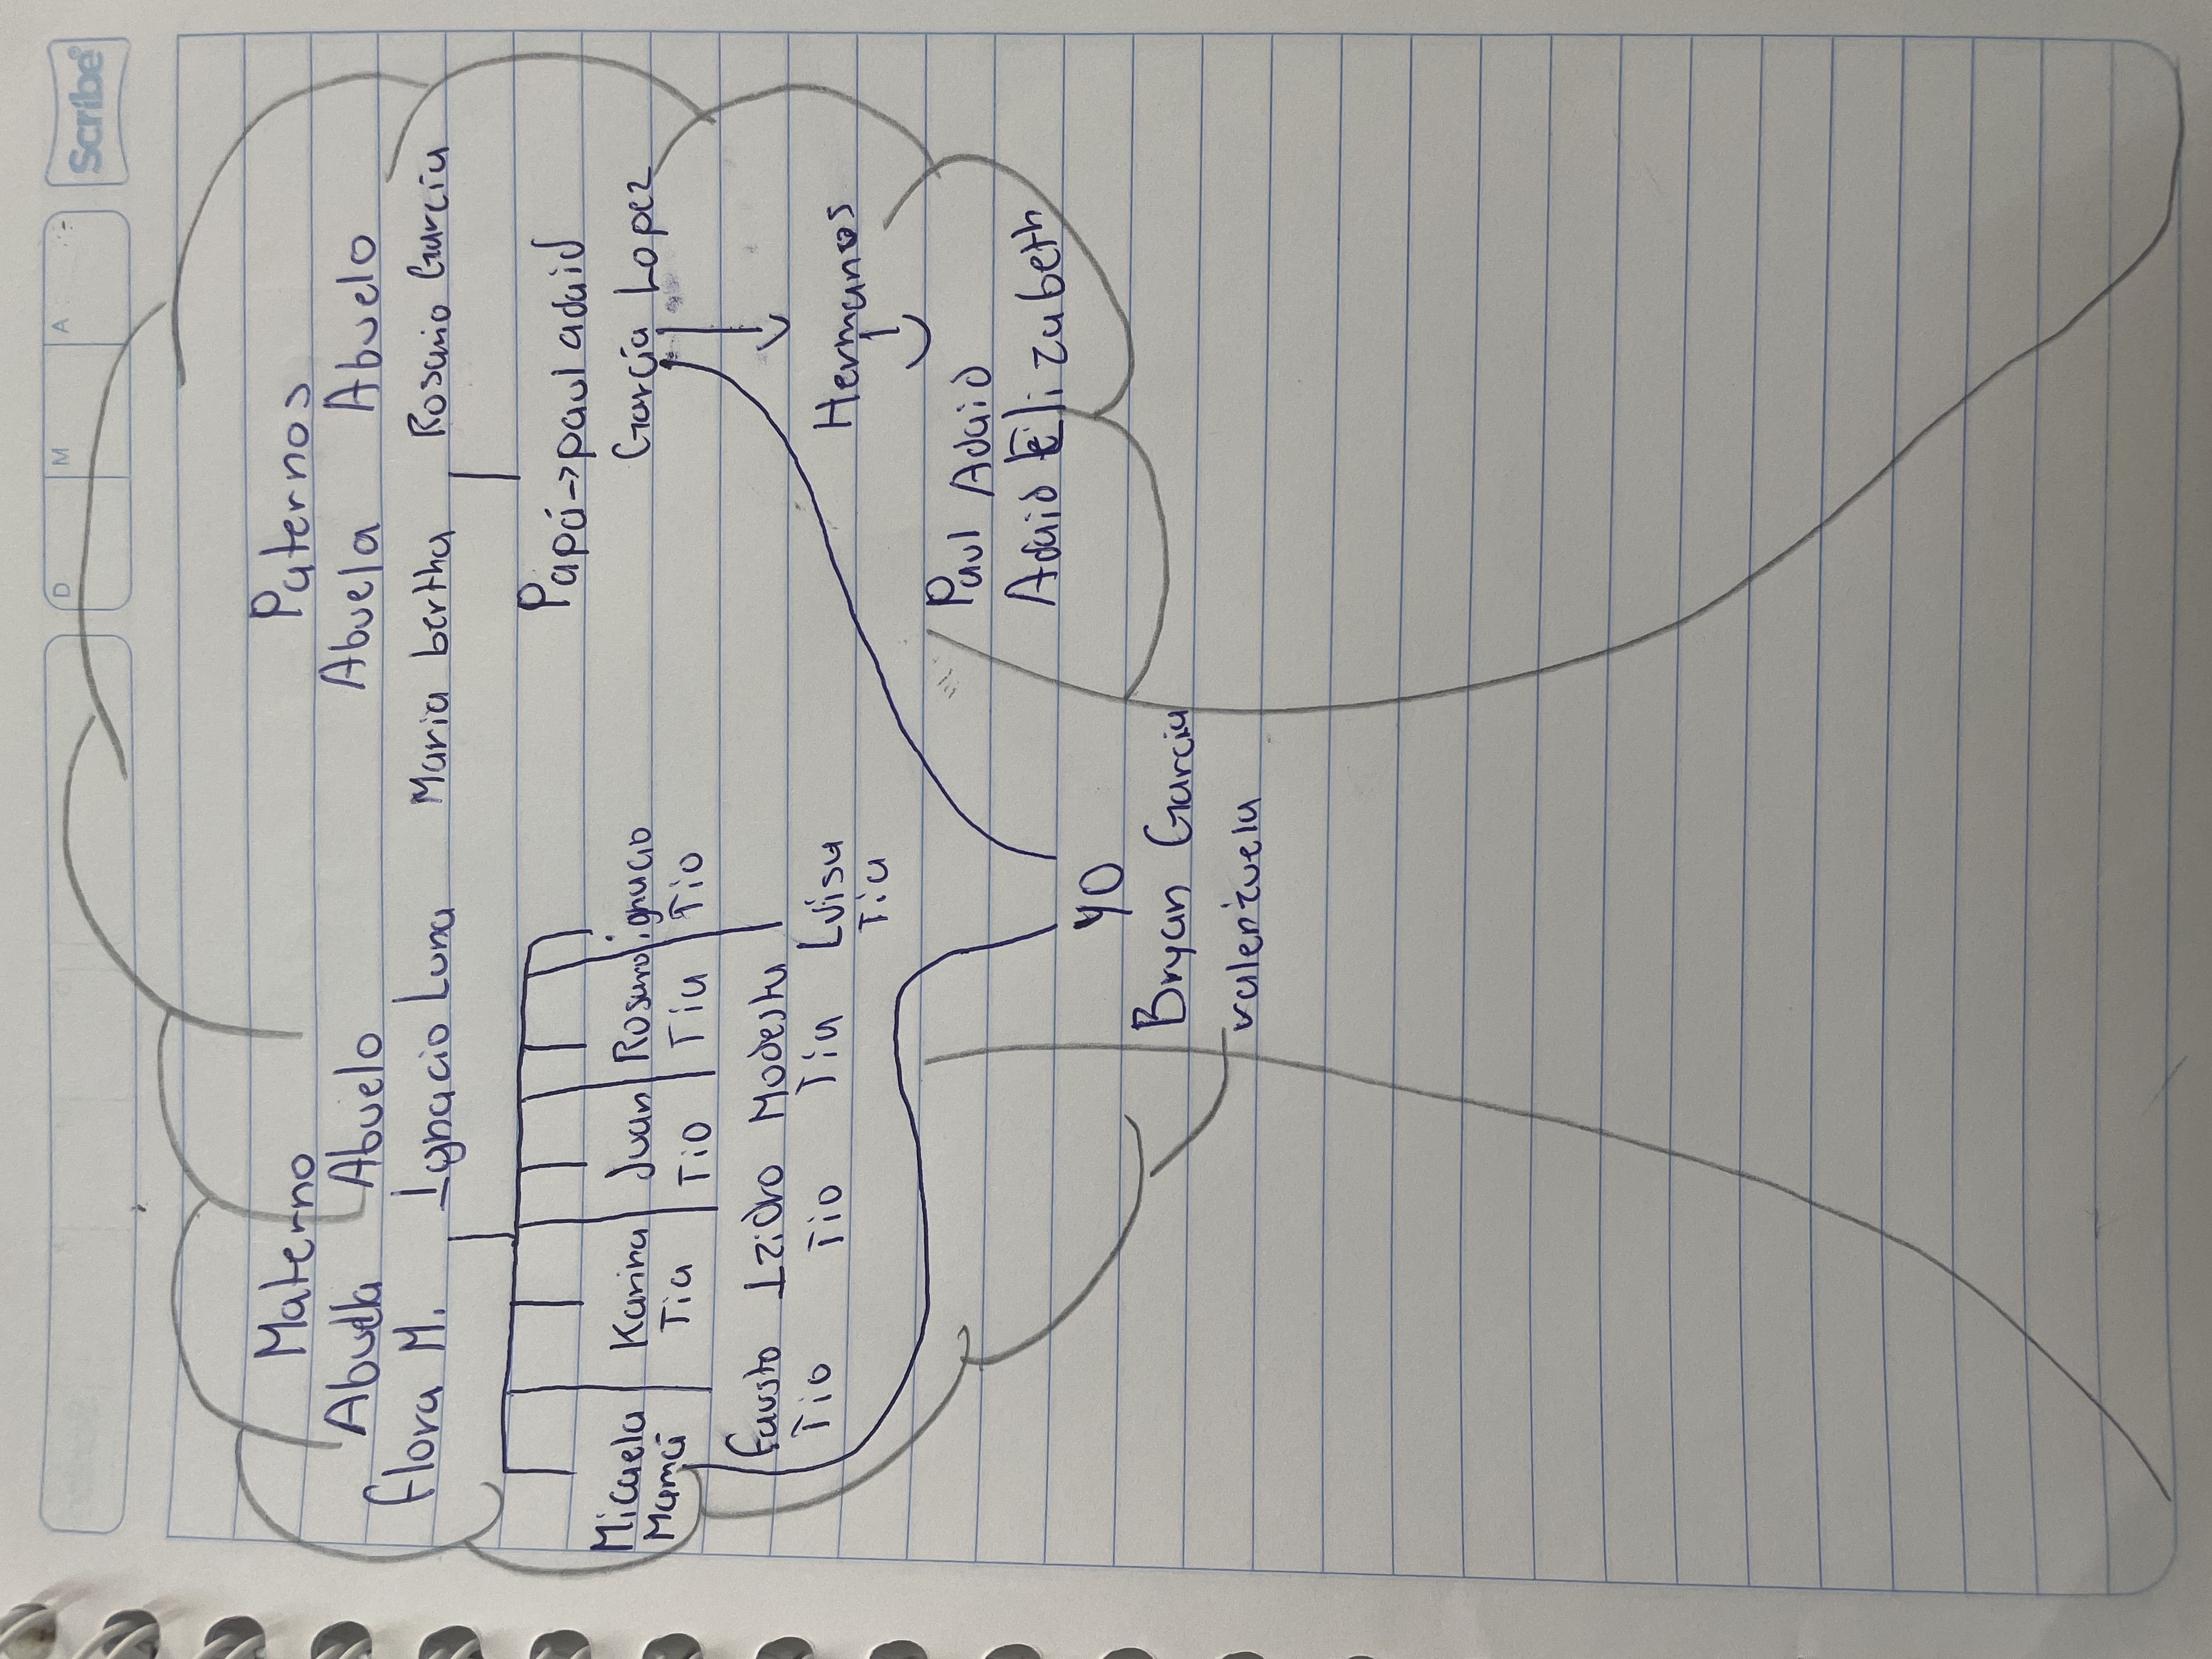 Scribe
D M A
Materno Paternos
Abuella Abuelo Abuela Abuelo
flora M. Ignacio Luna Maria bertha Rosario Garcia
Papá->paul adaid
Micaela Karina Juan Rosario ignacio Garcia Lopez
Mamá Tia Tio Tia Tio
fausto Izidro Modesta Luisa Hermanos
Tio Tio Tia Tia
Paul Adaid
Adaid Elizabeth
YO
Bryan Garcia
valenzuela